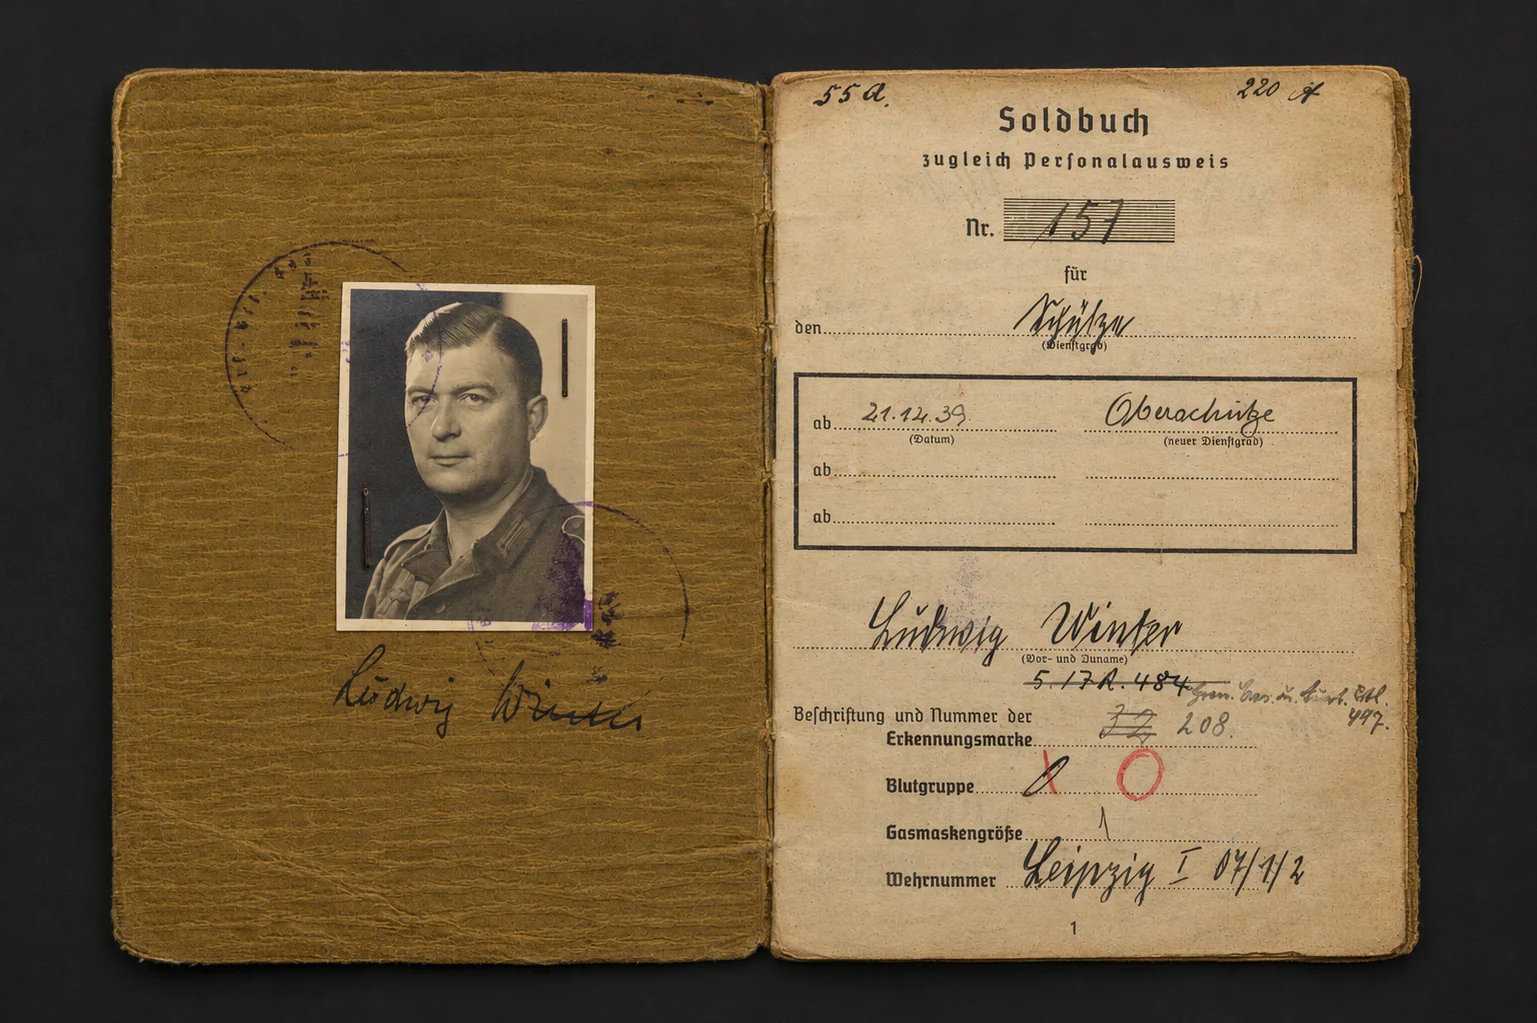 Ludwig Winter
55 A.
220
Soldbuch
zugleich Personalausweis
Nr. 157
für
den Schütze
(Dienstgrad)
ab 21.12.39 Oberschütze
(Datum) (neuer Dienstgrad)
ab
ab
Ludwig Winter
(Vor- und Zuname)
Beschriftung und Nummer der
Erkennungsmarke 208.
497.
Blutgruppe O O
Gasmaskengröße 1
Wehrnummer Leipzig I 07/1/2
1